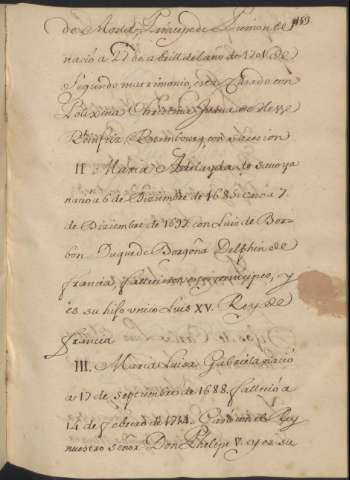 de Modes, Principe de Piamon el
nació a 27 de abrill del ano de 1701. de
Segundo matrimonio, esta Casado con
Polixena Christina Juana de
Reinfels Rotembourg, con sucesion
II. Maria Adelayda de Savoya
nacio a 6 de Diciembre de 1685 caso a 7.
de Diziembre de 1697 con Luis de Bor-
bon Duque de Borgoña Delphin de
francia fallecieron estos principes, y
es su hijo unico Luis XV. Rey de
francia
III. Maria Luisa Gabriela nació
a 17 de septiembre de 1688. falleció a
14 de febrero de 1714. Casó con el Rey
nuestro señor Don Phelipe V. y es su